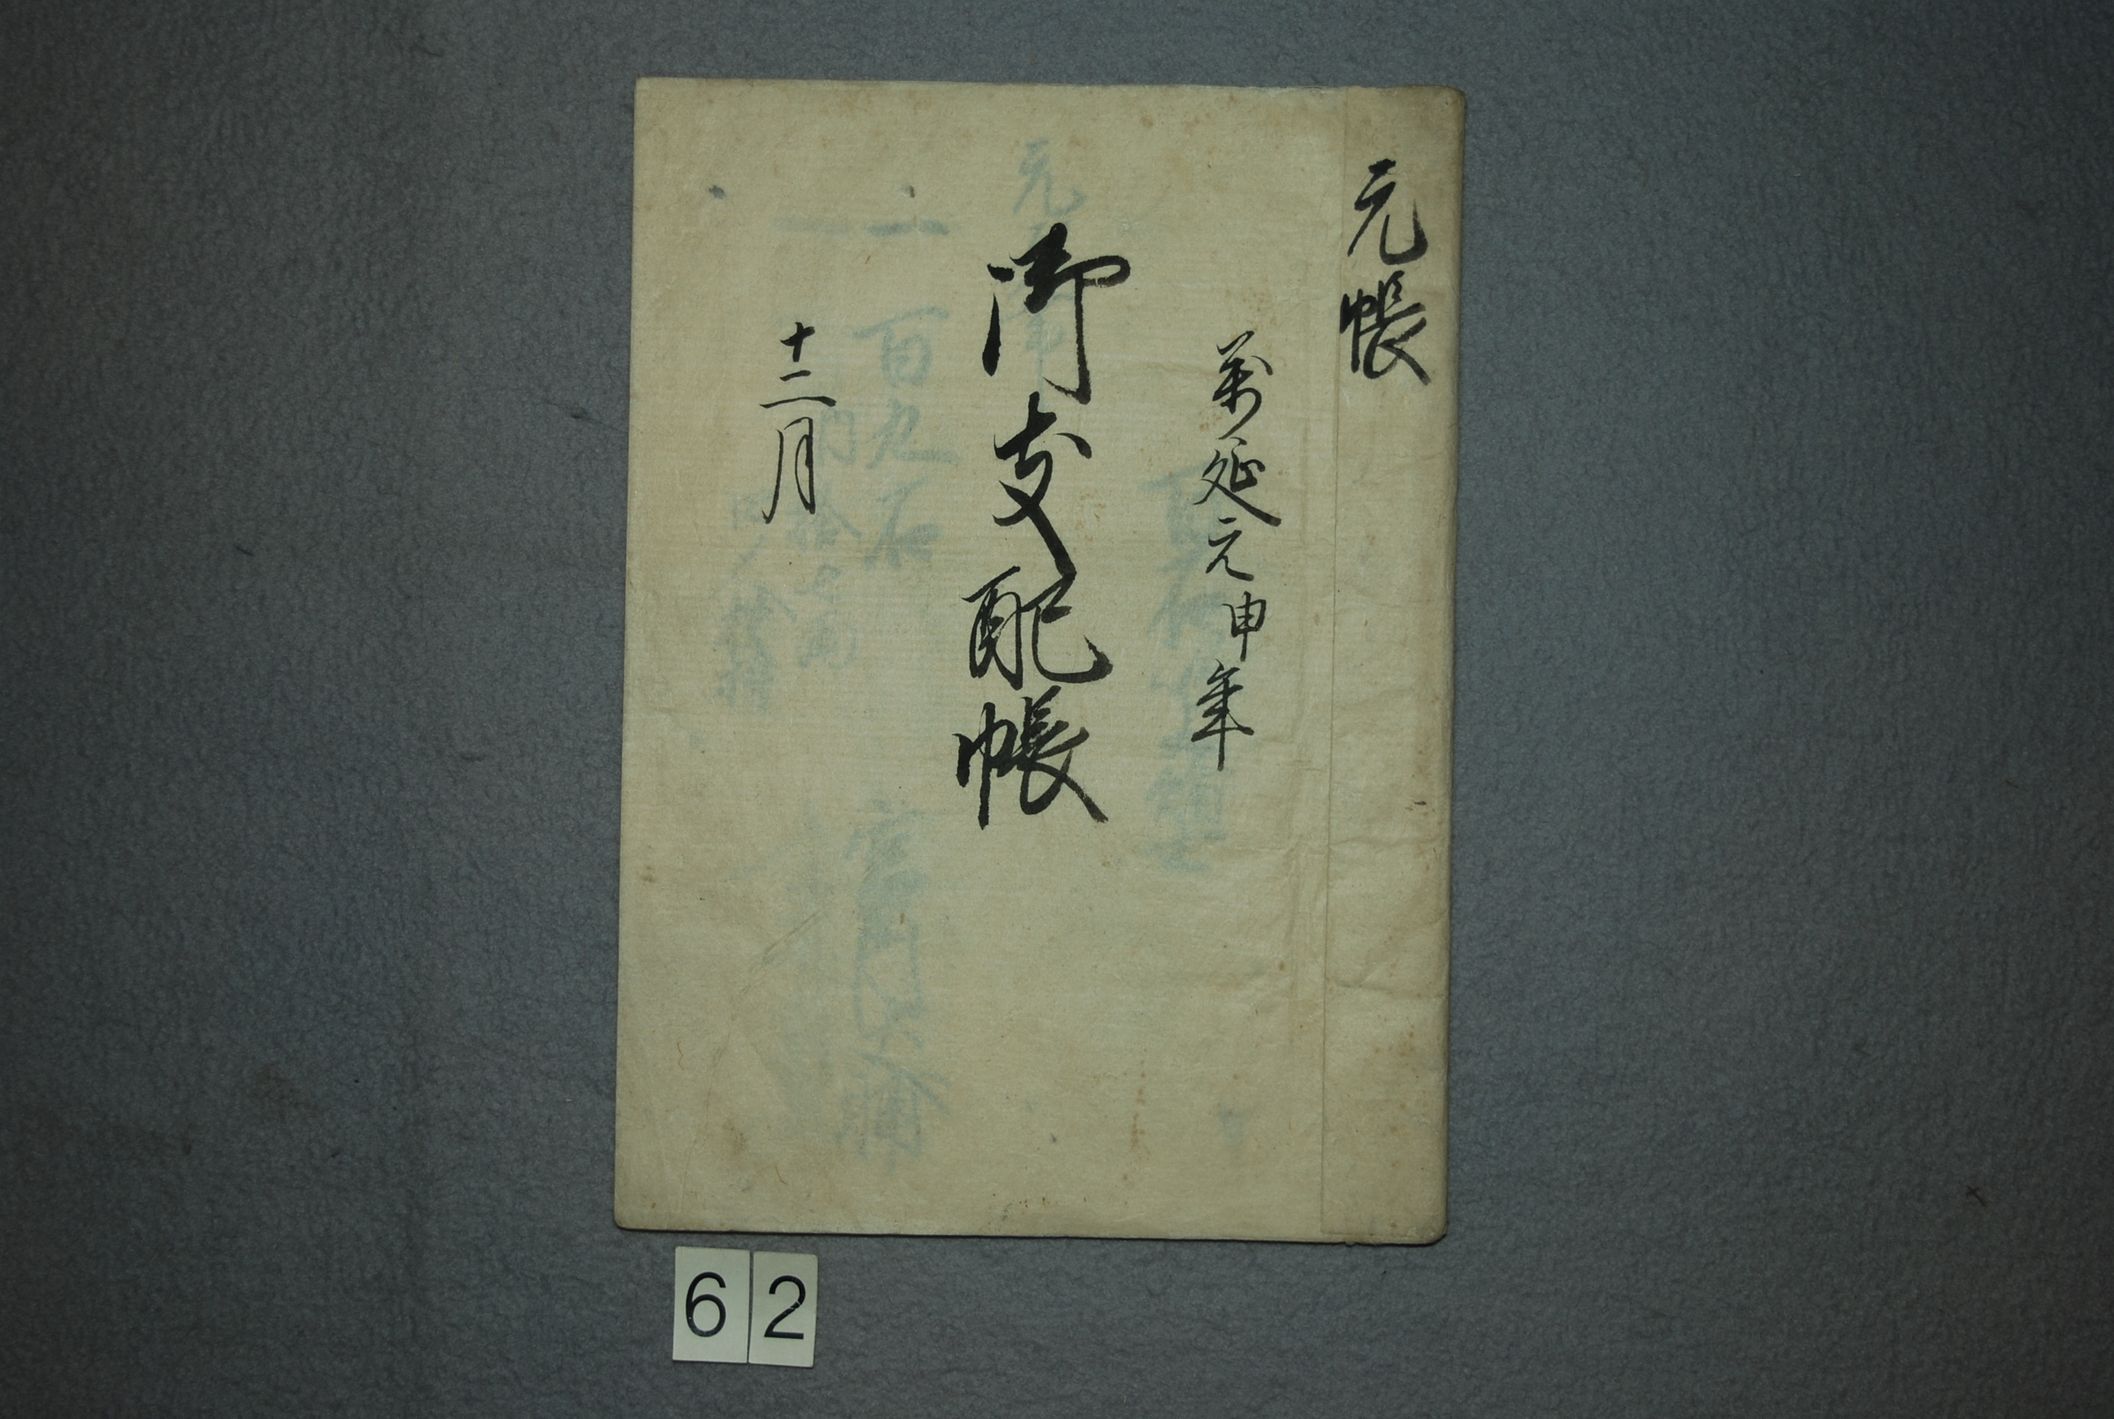 元帳
萬延元申年
御支配帳
十二月
62